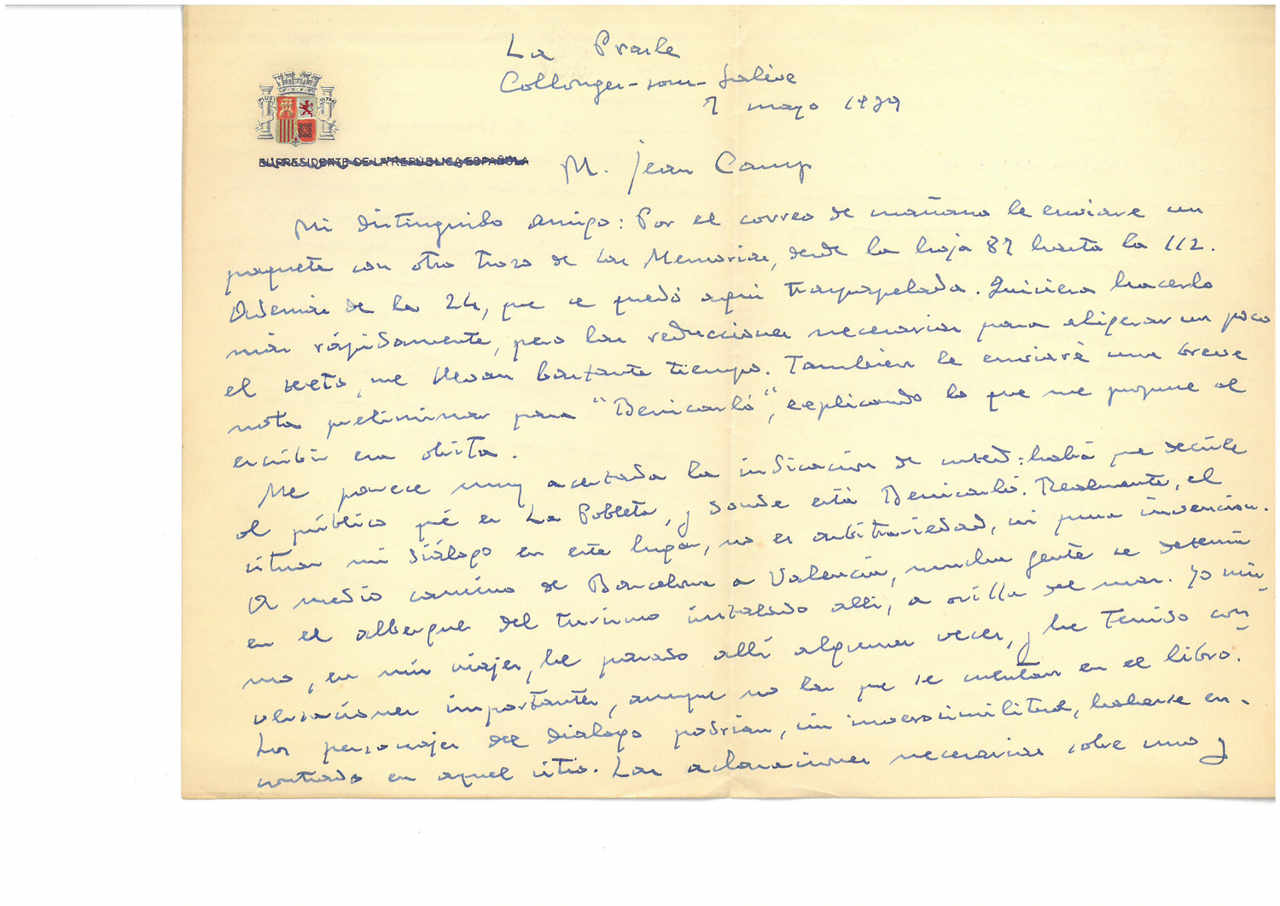 La Prasle
Collonges-sous-Salève
7 mayo 1939
EL PRESIDENTE DE LA REPÚBLICA ESPAÑOLA
M. Jean Camp
Mi distinguido amigo: Por el correo de mañana le enviaré un
paquete con otro trozo de las Memorias, desde la hoja 87 hasta la 112.
Además de la 24, que se quedó aquí traspapelada. Quisiera hacerlo
más rápidamente, pero las reducciones necesarias para aligerar un poco
el texto, me llevan bastante tiempo. También le enviaré una breve
nota preliminar para "Benicarló", explicando lo que me propuse al
escribir esa obrita.
Me parece muy acertada la indicación de usted: habrá que decirle
al público qué es La Pobleta, y donde está Benicarló. Realmente, el
situar mi diálogo en este lugar, no es arbitrariedad, ni pura invención.
A medio camino de Barcelona a Valencia, mucha gente se detenía
en el albergue del turismo instalado allí, a orilla del mar. Yo mis-
mo, en mis viajes, he parado allí algunas veces, y he tenido con-
versaciones importantes, aunque no las que se cuentan en el libro.
Los personajes del diálogo podrían, sin inverosimilitud, haberse en-
contrado en aquel sitio. Las aclaraciones necesarias sobre uno y